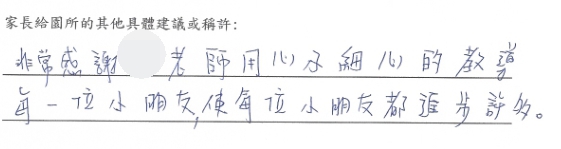 家長給園所的其他具體建議或稱許：
非常感謝 老師用心及細心的教導
每一位小朋友,使每位小朋友都進步許多。